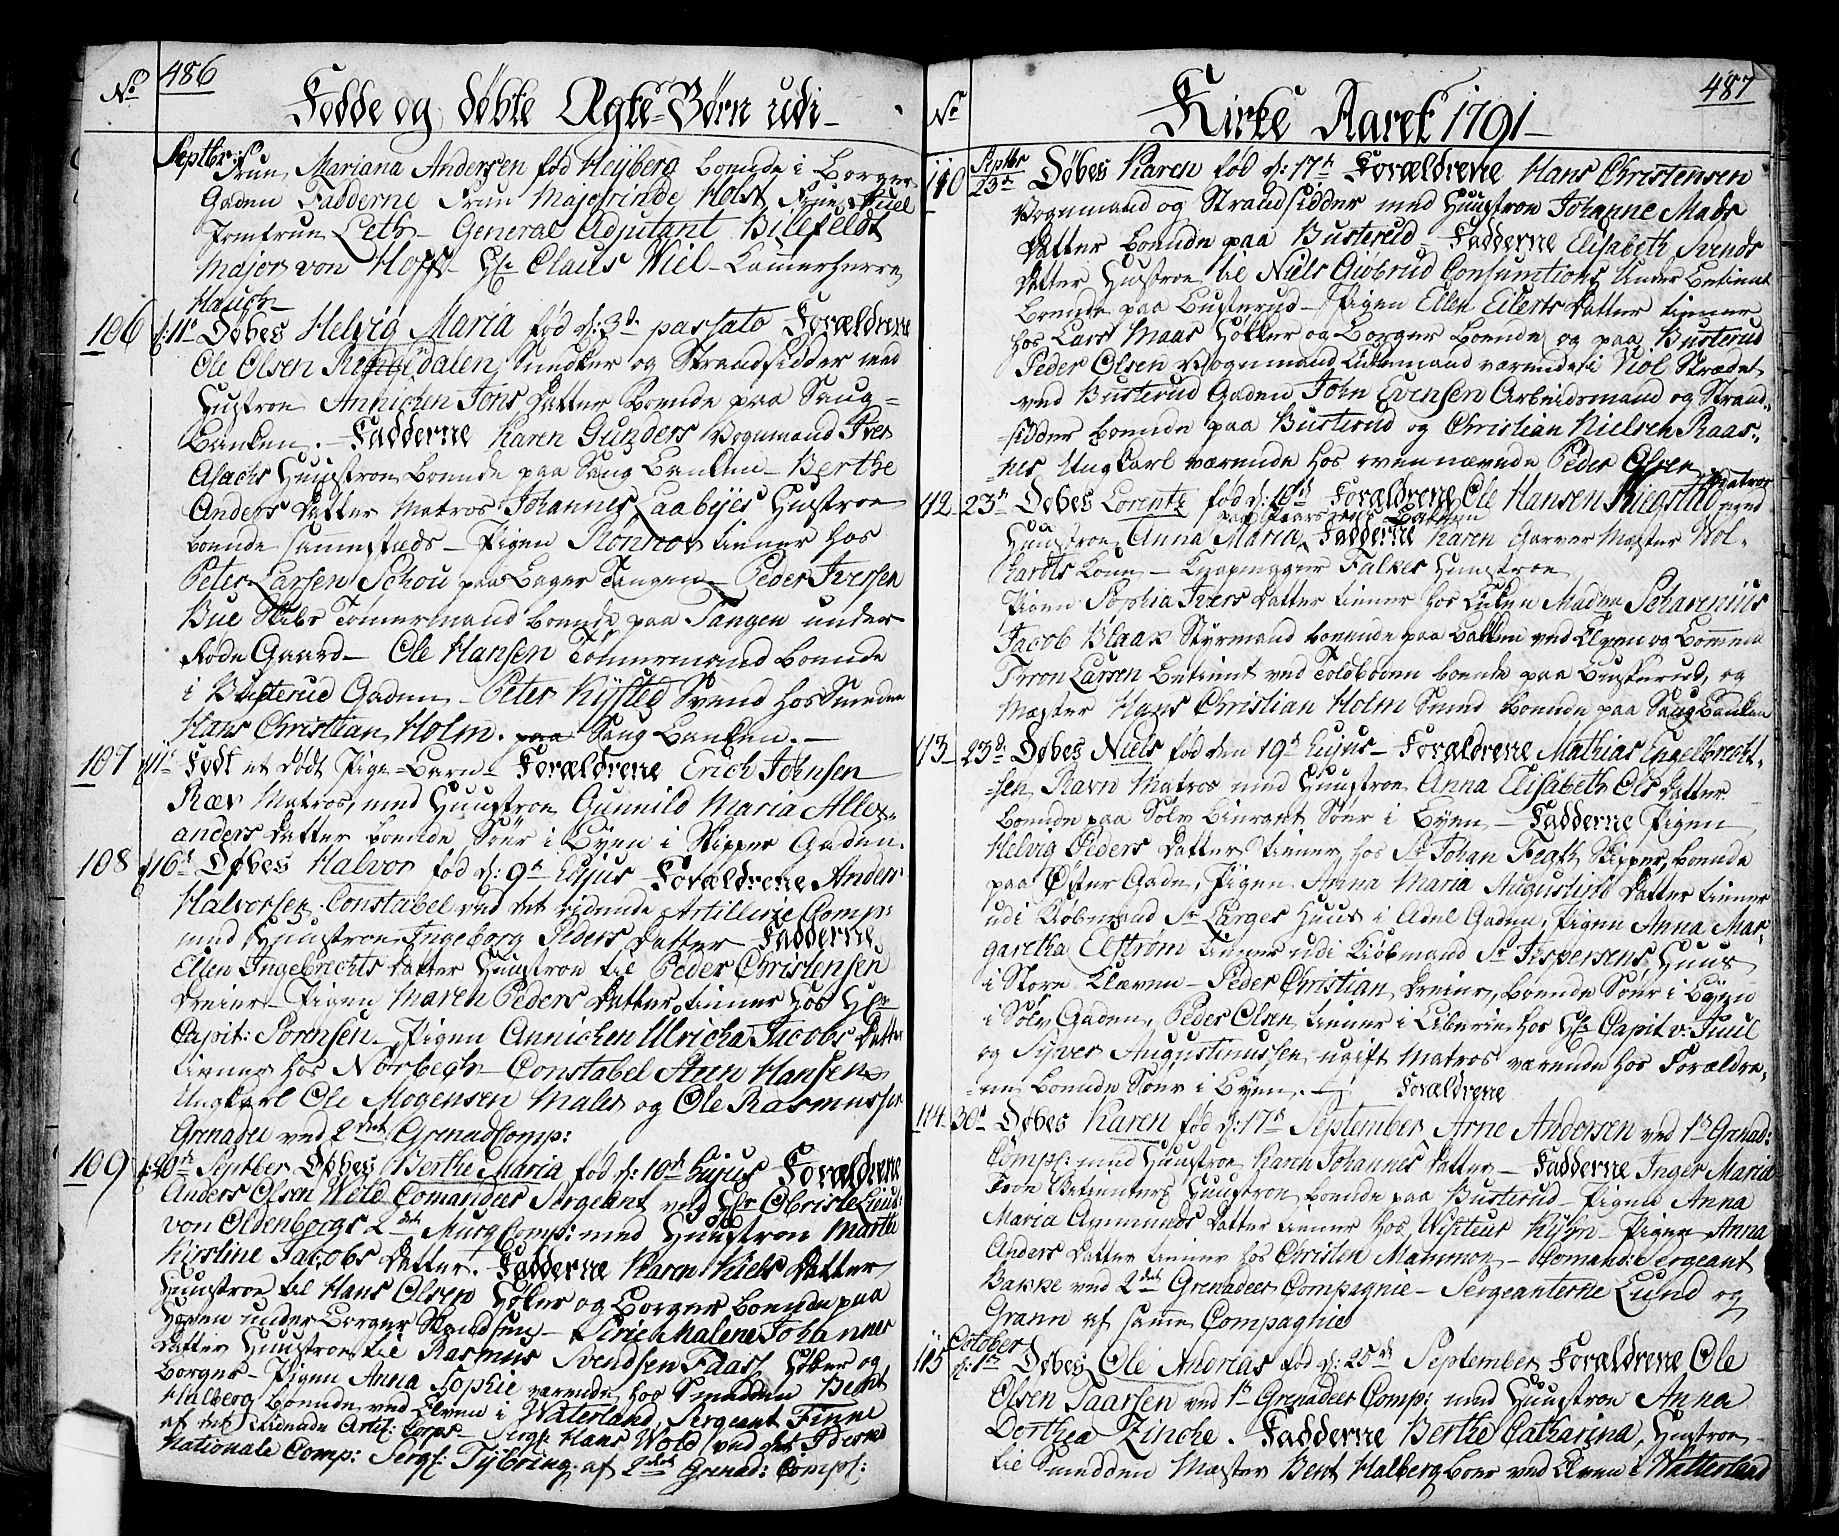 486
No
Fødde og døbte Ægte-Børn udi
Septbr:
Frue Mariana Andersen fød Heyberg boende i Borger
Gaden Fadderne Frue Majorinde Holst Frue Juel
Jomfrue Leth - General Adjutant Bilefeldt
Major von Hoff - Hr Claus Wiel - Kammerherre
Hauch -
106 d: 11te Døbes Helvig Maria fød d: 3die passato Forældrene
Ole Olsen dalen, Snedker og Strandsidder med
Hustroe Annichen Jons Datter boende paa Saug-
Banken. - Fadderne Karen Gunders Vognmand Iver
Aslachs Huustroe boende paa Saug Banken - Berthe
Anders Datter Matros Johannes Laabyes Hustroe
boende sammestæds - Pigen Rønnov tiener hos
Peter Larsen Schou paa Lager Tangen - Peder Iversen
Bue Skibs Tømmermand boende paa Tangen under
Røde Gaard - Ole Hansen Tømmermand boende
i Busterud Gaden - Peter Kysted Svend hos Smeden
Hans Christian Holm. paa Saug Banken. -
107 d 11te Født et dødt Pige-Barn - Forældrene Erich Johnsen
Ræv Matros, med Huustroe Gunnild Maria Allex-
anders Datter boende Sønr i Byen i Skipper Gaden.
108 d 16de Døbes Halvor fød d: 9de hujus - Forældrene Anders
Halvorsen Constabel ved det ridende Artillerie Comp:
med Huustroe Ingeborg Peders Datter - Fadderne
Ellen Ingebrechts Datter Huustroe til Peder Christensen
Dreier - Pigen Maren Peders Datter, tiener hos Hr
Capit: Sørensen, Pigen Annichen Ulricka Jacobs Datter
tiener hos Nørbech - Constabel Sten Hansen
Ungkarl Ole Mogensen Maler og Ole Rasmussen
Grenadeer ved 2det Grenad Comp:
109 d: 20de Septber Døbes Berthe Maria fød d: 10de hujus Forældrene
Anders Olsen Wold Comandeer Sergeant ved Hr Obriste Lieut:
von Oldenborgs 2det Musq Comp: med Huustroe Marthe
Kirstine Jacobs Datter. Fadderne Karen Niels Datter
Huustroe til Hans Olsen Høker og Borger boende paa
Hoven under Borger Skandsen - Sirie Malene Johannes
Datter Huustroe til Rasmus Svendsen Faas, Høker og
Borger - Pigen Anna Sophie værende hos Smeden Bent
Halberg boende ved Elven i Vaterland, Sergeant Finne
af det Ridende Artl: Corps - Sergt: Hans Wold ved det Idense
Nationale Comp: Sergt: Tybring af 2det Grenad: Comp:
487
No
Kirke Aaret 1791
110 Septbr 23de Døbes Karen fød d: 17de Forældrene Hans Christensen
Vognmand og Strandsidder med Huustroe Johanne Mads
Datter boende paa Busterud - Fadderne Elisabeth Svends
Datter Hustroe til Niels Giøbrud Consumtions Under Betient
boende paa Busterud - Pigen Ellen Eilerts Datter tiener
hos Lars Maas Høker og Borger boende og paa Busterud
Peder Olsen Vognmand Enkemand værende i Viol Strædet
ved Busterud Gaden John Evensen Arbeidsmand og Strand-
sidder boende paa Busterud og Christian Nielsen Raas-
nes Ungkarl værende hos ovennævnte Peder Olsen
112 23de Døbes Lorentz fød d: 16de Forældrene Ole Hansen Matros med
Huustroe Anna Maria Fadderne Karen Garver Mester Vol-
kardts Kone - Knapmager Falkes Huustroe
Pigen Sophia Ivers Datter tiener hos Enken Madme Scharenius
Jacob Blaak Styrmand boende paa Bakken ved Elven og
Tyron Larsen Betient ved Toldboden boende paa Busterud, og
Mæster Hans Christian Holm Smed boende paa Saug Banken
113 23de Døbes Niels fød den 19de hujus - Forældrene Mathias Engelbrecht-
sen Ravn Matros med Huustroe Anna Elisabeth Ols Datter
boende paa Sølv Sønr i Byen - Fadderne Pigen
Helvig Peders Datter tiener hos Sr Johan Fegth Skipper, boende
paa Øster Gade, Pigen Anna Maria Augustin Datter tiener
udi Kiøbmand Sr Larges Huus i Adel Gaden, Pigen Anna Mar-
garetha Elstrøm tiener udi Kiøbmand Sr Jespersens Huus
i Store Kleven - Peder Christian Dreier, boende Sønr i Byen
i Sølv Gaden, Peder Olsen tiener i Liberie hos Hr Capit v: Juul
og Syver Augustinussen, ugift Matros værende hos Forældre-
ne boende Sønr i Byen. -
Forældrene
114 30te Døbes Karen fød d: 17de September Arne Andersen ved 1te Grenad:
Comp: med Huustroe Karen Johannes Datter - Fadderne Inger Maria
Toldbetienters Huustroe boende paa Busterud - Pigen Anna
Maria Ammunds Datter tiener hos Kyhn - Pigen Anna
Anders Datter tiener hos Christen Mammon - Comand: Sergeant
Bakke ved 2det Grenadeer Compagnie - Sergeanterne Lund og
Grann af samme Compagnie
115 October d: 1te Døbes Ole Andreas fød d: 25de September Forældrene Ole
Olsen Taarsen ved 1te Grenadeer Comp: med Huustroe Anna
Dorthea Zincke. Fadderne Berthe Catharina, Hustroe
til Smedden Mæster Bent Halberg boer ved Elven i Watterland